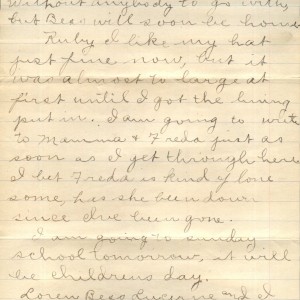 without anybody to go with,
but Bess will soon be home
Ruby I like my hat
just fine now, but it
was almost to large at
first until I got the lining
put in. I am going to write
to Mamma & Freda just as
soon as I get through here
I bet Freda is kind of lone
some, has she been down
since I've been gone.
I am going to sunday
school tomorrow, it will
be childrens day.
Loren Bess Lucille and I